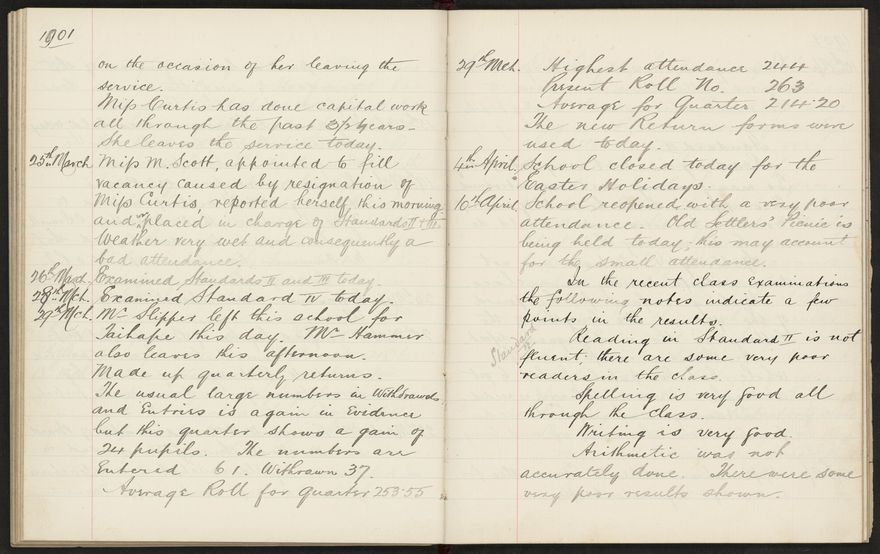 1901
on the occasion of her leaving the
service.
Miss Curtis has done capital work
all through the past 3½ years -
She leaves the service today.
25th March Miss M. Scott, appointed to fill
vacancy caused by resignation of
Miss Curtis, reported herself, this morning
and was placed in charge of Standards II + III.
Weather very wet and consequently a
bad attendance.
26th March. Examined Standards II and III today.
28th Mch. Examined Standard IV today.
29th Mch. Mr Slipper left this school for
Taihape this day. Mr Hammer
also leaves this afternoon.
Made up quarterly returns.
The usual large numbers in Withdrawals
and Entries is again in Evidence
but this quarter shows a gain of
24 pupils. The numbers are
Entered 61. Withdrawn 37.
Average Roll for quarter 253.55
29th Mch. Highest attendance 244
Present Roll No. 263
Average for Quarter 214.20
The new Return forms were
used today.
4th April. School closed today for the
Easter Holidays.
10th April. School reopened with a very poor
attendance. Old Settlers' Picnic is
being held today; this may account
for the small attendance.
In the recent class examinations
the following notes indicate a few
points in the results.
Standard II
Reading in Standard II is not
fluent; there are some very poor
readers in the class.
Spelling is very good all
through the class.
Writing is very good.
Arithmetic was not
accurately done. There were some
very poor results shown.